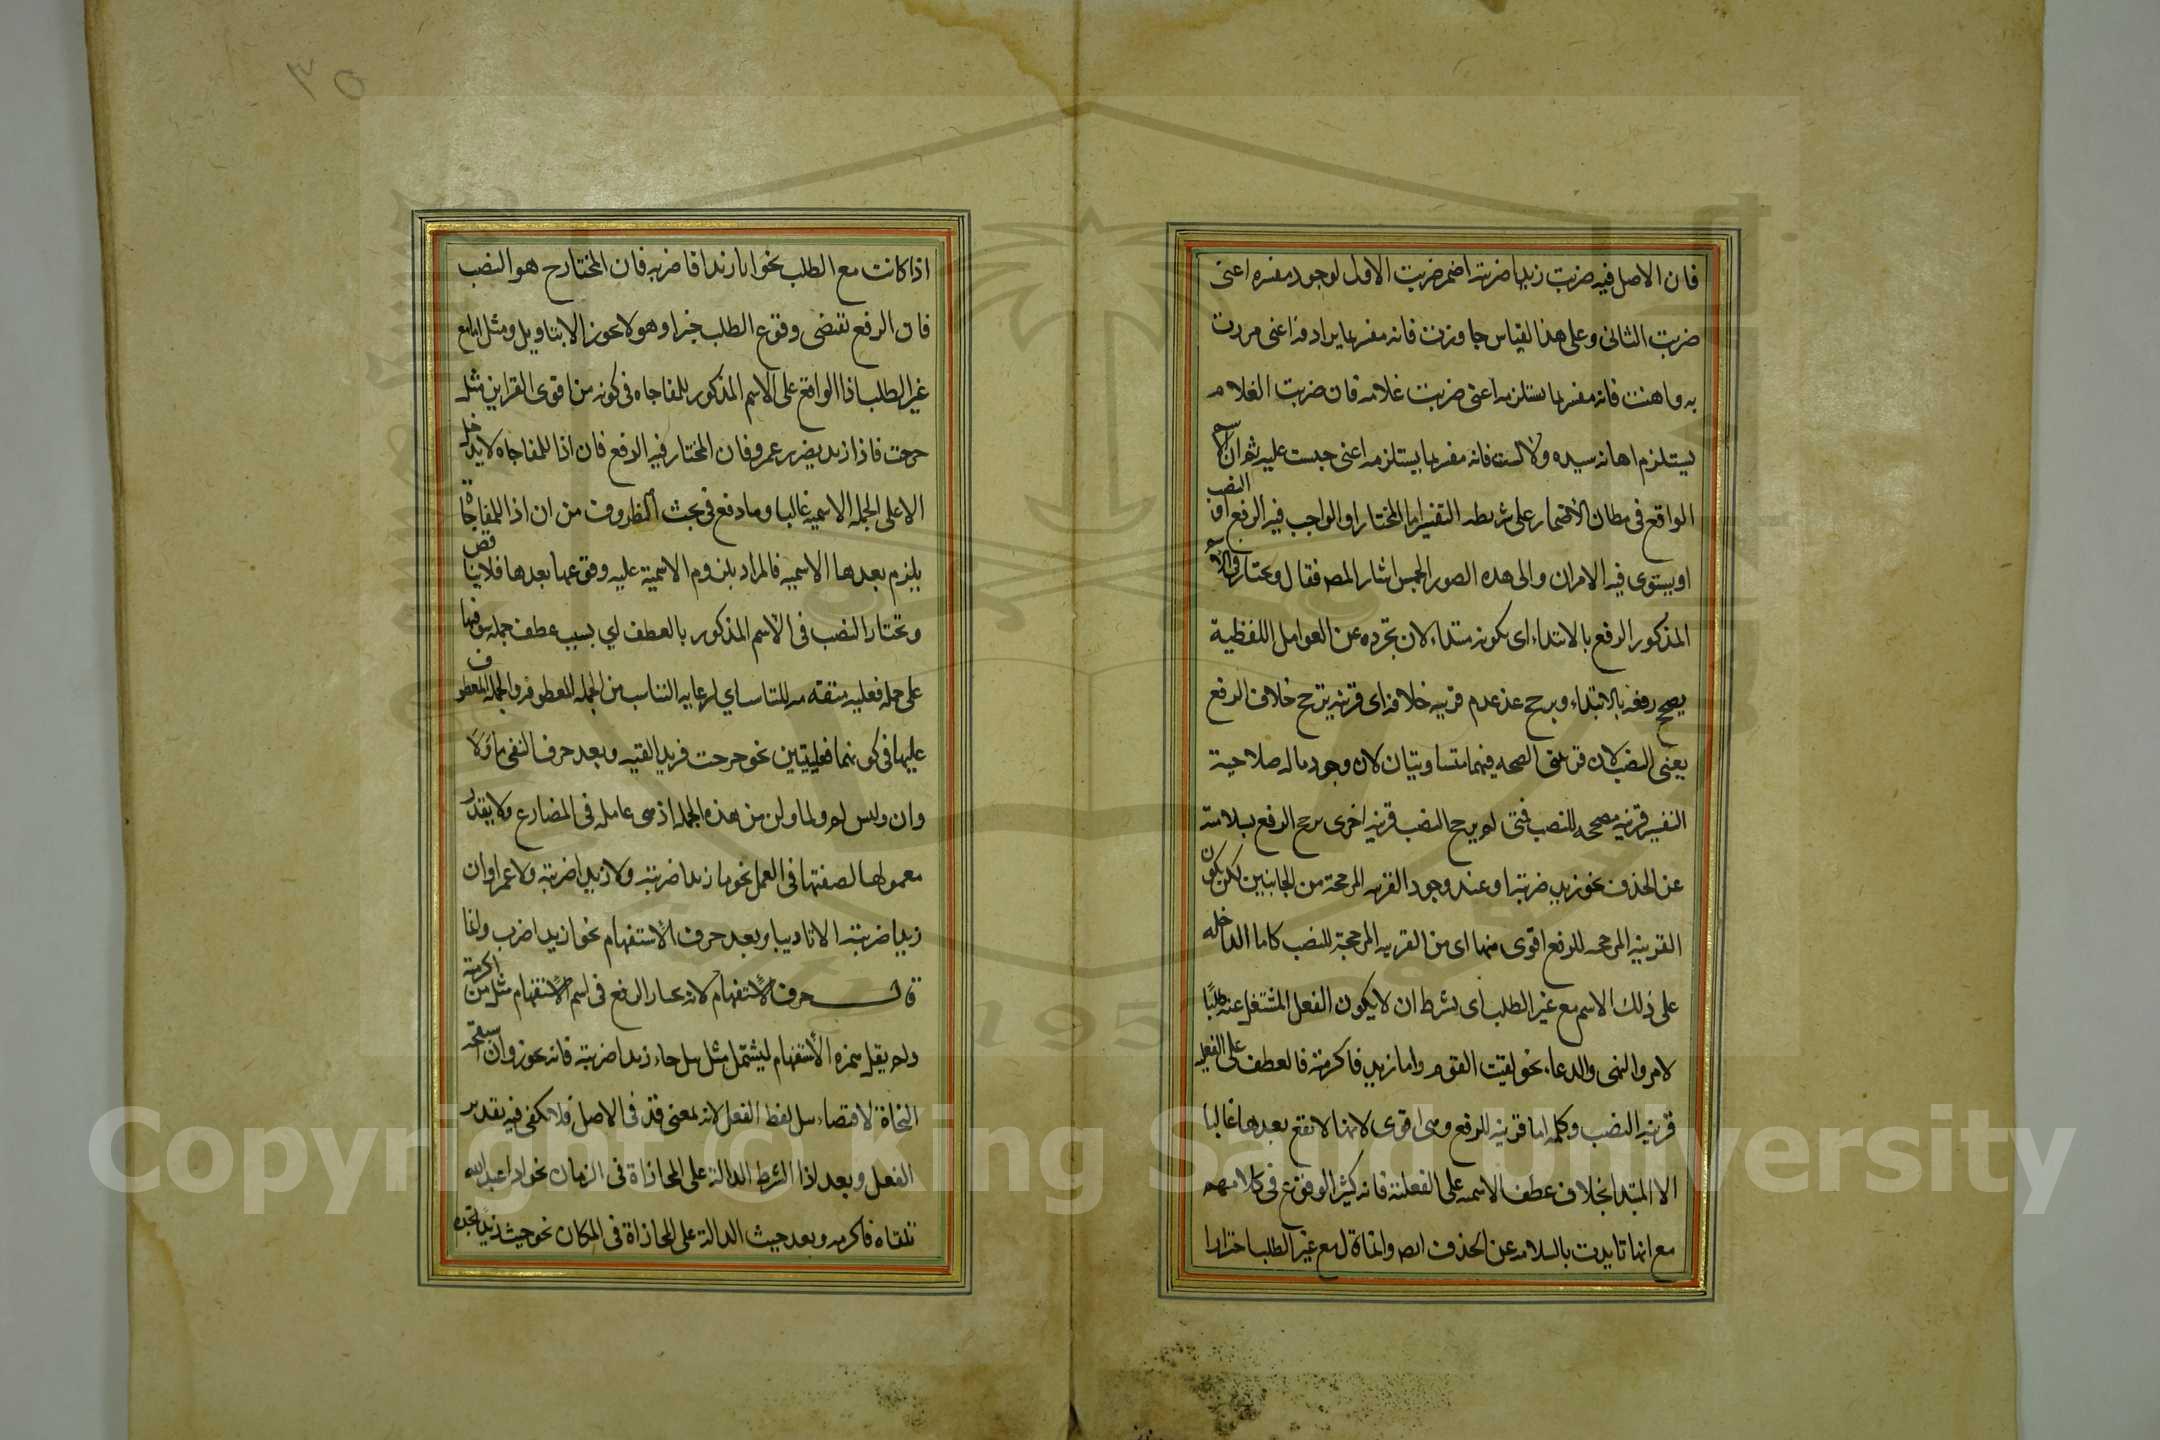 فان الاصل فيه ضربت زيدا ضربته اضمر ضربت الاول لوجود مفسره اعنى
ضربت الثانى وعلى هذا القياس جاوزت فانه مفسر بما يرادفه اعنى مررت
به واهنت فانه مفسر بما يستلزمه اعنى ضربت غلامه فان ضرب الغلام
يستلزم اهانة سيده ولابست فانه مفسر بما يستلزمه اعنى حبست عليه ثم ان الاسم
الواقع فى مظان الاضمار على شريطة التفسير اما المختار او الواجب فيه الرفع او النصب
او يستوى فيه الامران والى هذه الصور الخمس اشار المص فقال ويختار فى الاسم
المذكور الرفع بالابتداء اى بكونه مبتداء لان تجرده عن العوامل اللفظية
يصحح رفعه بالابتداء ويرجح عند عدم قرينه خلافه اى قرينه يرجح خلاف الرفع
يعنى النصب لان قرينتى الصحه فيهما متساويتان لان وجود ماله صلاحية
التفسير قرينه مصححه للنصب فمتى لم يرجح النصب قرينه اخرى يرجح الرفع بسلامته
عن الحذف نحو زيد ضربته او عند وجود القرينه المرجحة من الجانبين لكن يكون
القرينه المرجحه للرفع اقوى منها اى من القرينه المرجحة للنصب كاما الداخله
على ذلك الاسم مع غير الطلب اى بشرط ان لا يكون الفعل المشتغل عنه طلبا
لامر والنهى والدعاء نحو لقيت القوم واما زيد فاكرمته فالعطف على الفعليه
قرينه النصب وكلمه اما قرينه للرفع وهى اقوى لانها لا تقع بعدها غالبا
الا المبتدا بخلاف عطف الاسميه على الفعلية فانه كثير الوقوع فى كلامهم
مع انها تايدت بالسلامه عن الحذف ايضا وانما قال مع غير الطلب احترازا
٣٥
اذا كانت مع الطلب نحو اما زيدا فاضربه فان المختار ح هو النصب
فان الرفع يقتضى وقوع الطلب خبرا وهو لا يجوز الا بتاويل ومثل اما مع
غير الطلب اذا الواقع على الاسم المذكور للمفاجاه فى كونه من اقوى القراين مثل
خرجت فاذا زيد يضربه عمرو فان المختار فيه الرفع فان اذا للمفاجاه لا يدخل
الا على الجملة الاسميه غالبا وما وقع فى بحث الظروف من ان اذا للمفاجاة
يلزم بعدها الاسميه فالمراد بلزوم الاسمية غلبه وقوعها بعدها فلا تناقض
ويختار النصب فى الاسم المذكور بالعطف اي بسبب عطف جمله هو فيها
على جمله فعليه متقدمه للتناسب اي لرعايه التناسب بين الجمله المعطوفه والجمله المعطوف
عليها فى كونهما فعليتين نحو خرجت فزيدا لقيته وبعد حرف النفى ما ولا
وان وليس لم ولما ولن من هذه الجمله اذ هى عامله فى المضارع ولا يقدر
معمولها لضعفها فى العمل نحو ما زيدا ضربته ولا زيدا ضربته ولا عمرا وان
زيدا ضربته الا تاديبا وبعد حرف الاستفهام نحو ازيدا ضربته وانما
قال حرف الاستفهام لانه يختار الرفع فى اسم الاستفهام مثل من اكرمته
ولم يقل همزة الاستفهام ليشتمل مثل هل زيدا ضربته فانه يجوز وان استقبحه
النحاة لاقتضاء هل لفظ الفعل لانه بمعنى قد فى الاصل فلا يكفى فيه تقدير
الفعل وبعد اذا الشرط الدالة على المجازاة فى الزمان نحو اذا عبد الله
تلقاه فاكرمه وبعد حيث الدالة على المجازاة فى المكان نحو حيث زيدا تجده
Copyright © King Saud University